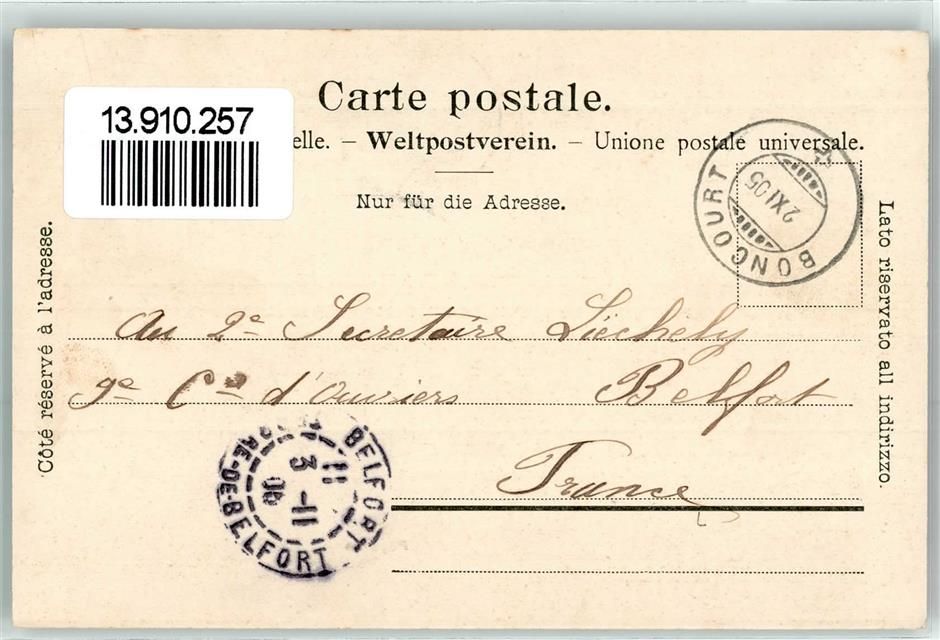 Carte postale.
13.910.257
elle. – Weltpostverein. – Unione postale universale.
Nur für die Adresse.
BONCOURT
2 XI 05
Côté réservé à l'adresse.
Lato riservato all indirizzo.
Au 2e Secretaire Liechely
9e Cie d'Ouvriers Belfort
France
BELFORT
11
3 -11
05
RE-DE-BELFORT